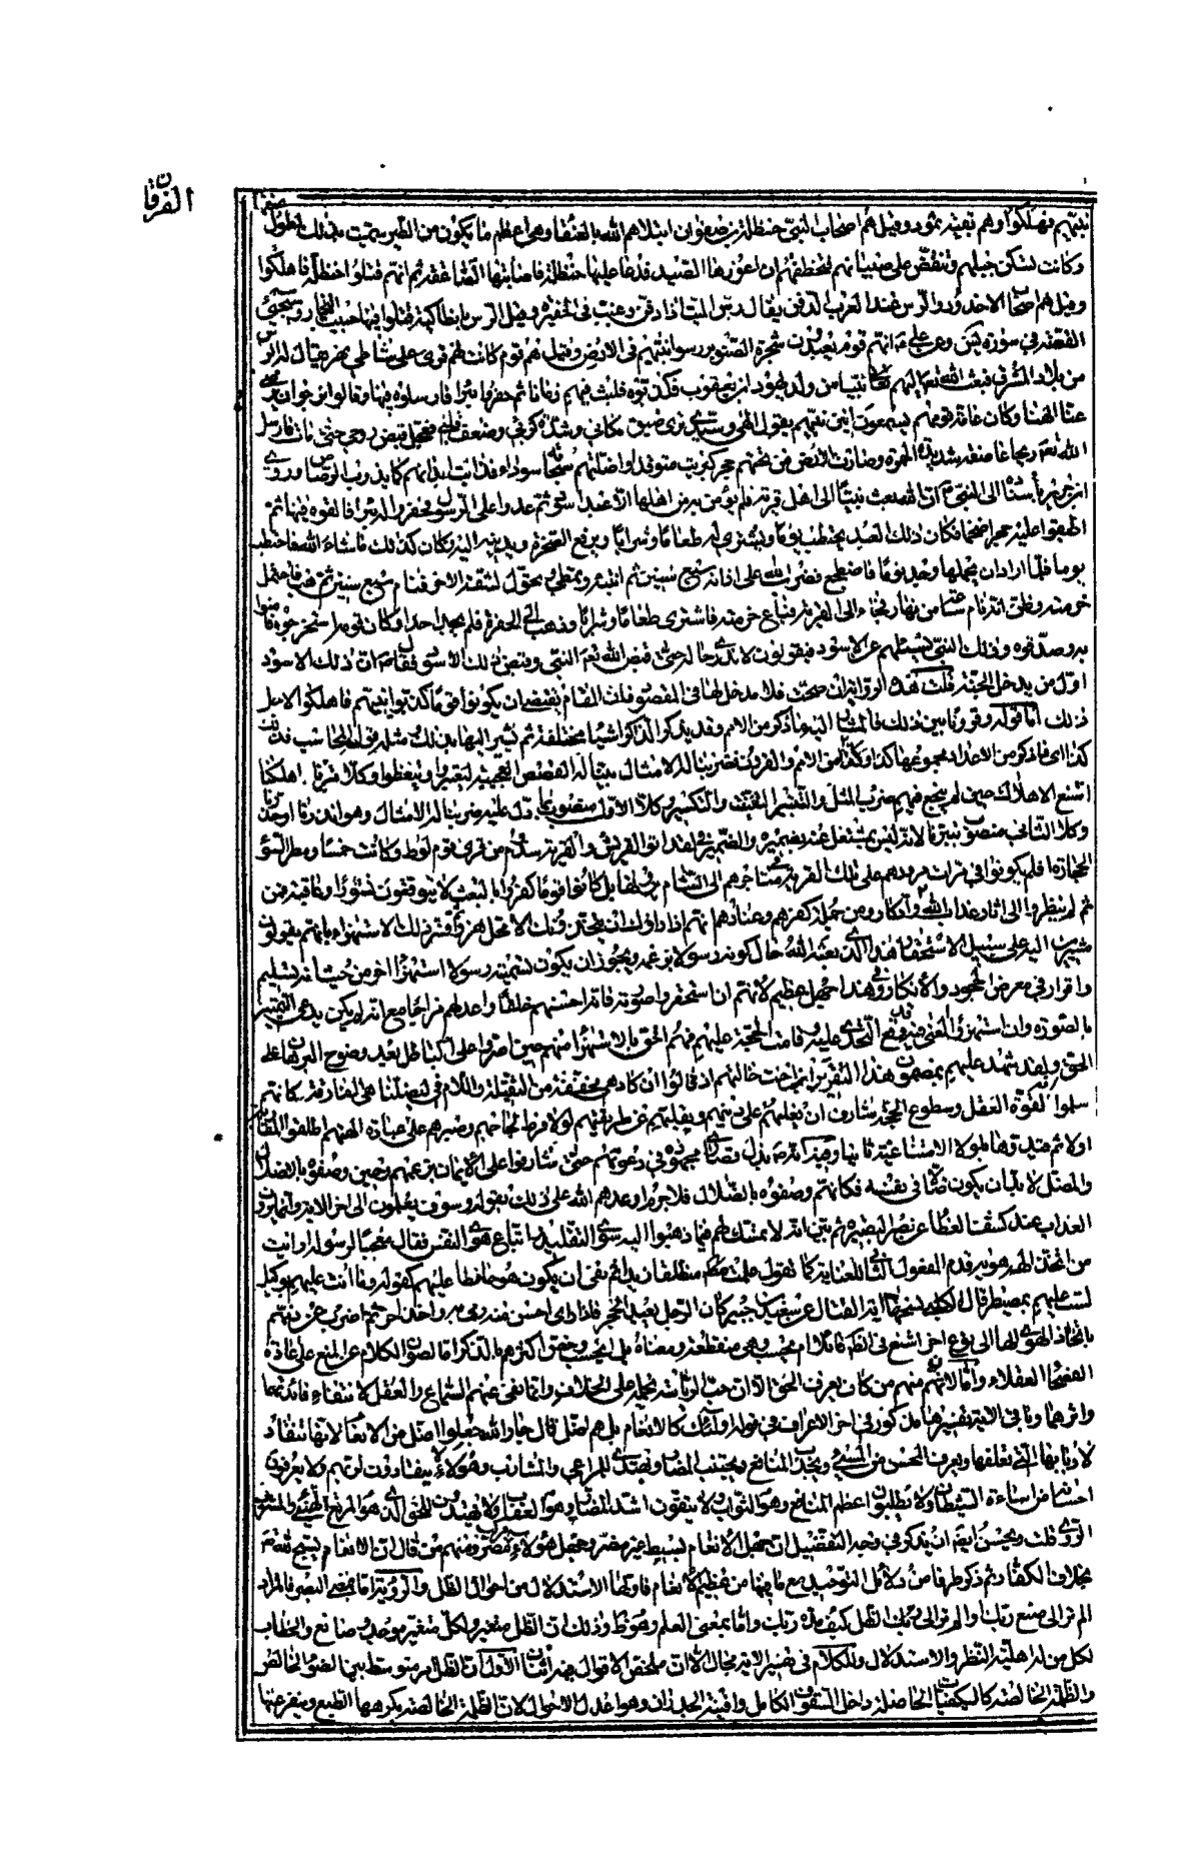 الفرقان
نبيهم فهلكوا وهم بقية ثمود وقيل هم اصحاب النبي حنظلة بن صفوان ابتلاهم الله بالعنقاء وهي اعظم ما يكون من الطير سميت بذلك لطول عنقها
وكانت تسكن جبلهم وتنقض على صبيانهم فتخطفهم ان اعوزها الصيد فدعا عليها حنظلة فاصابتها الصاعقة ثم انهم قتلوا حنظلة فاهلكوا
وقيل هم اصحاب الاخدود والرس عند العرب الدفن يقال رس الميت اذا دفن وغيب في الحفيرة وقيل الرس بانطاكية قتلوا فيها حبيب النجار وستجيء
القصة في سورة يس وعن علي انهم قوم يعبدون شجرة الصنوبر رسوا نبيهم في الارض وقيل هم قوم كانت لهم قرى على شاطئ نهر يقال له الرس
من بلاد المشرق فبعث الله تعالى اليهم نبيا من ولد يهودا بن يعقوب فكذبوه فلبث فيهم زمانا ثم حفروا بئرا فارسلوه فيها وقالوا نرجو ان يرضى
عنا الهنا وكان عامة يومهم يسمعون انين نبيهم يقول الهي وسيدي ترى ضيق مكاني وشدة كربي وضعف قلبي فعجل قبض روحي حتى مات فارسل
الله ريحا عاصفة شديدة الحمرة وصارت الارض من تحتهم حجر كبريت متوقد واظلتهم سحابة سوداء فذابت ابدانهم كما يذوب الرصاص وروى
ابن جرير باسناده الى النبي ان الله بعث نبيا الى اهل قرية فلم يؤمن به من اهلها الا عبد اسود ثم عدوا على الرسول فحفروا له بئرا فالقوه فيها ثم
اطبقوا عليه حجرا ضخما فكان ذلك العبد يحتطب يوما ويشتري له طعاما وشرابا ويرفع الصخرة ويدليه اليه وكان كذلك ما شاء الله فاحتطب
يوما فلما اراد ان يحملها وجد نوما فاضطجع فضرب الله على اذانه سبع سنين ثم انتبه وتمطى وتحول لشقه الاخر فنام سبع سنين ثم هب فاحتمل
حزمته وظن انه نام ساعة من نهار فجاء الى القرية فباع حزمته فاشترى طعاما وشرابا وذهب الى الحفرة فلم يجد احدا وكان قومه استخرجوه فامنوا
به وصدقوه وذلك النبي يسئلهم عن الاسود فيقولون لا ندري حاله حتى قبض الله النبي وقبض ذلك الاسود فقال ان ذلك الاسود
اول من يدخل الجنة قلت هذه الرواية ان صحت فلا مدخل لها في المقصود فان المقام يقتضي ان يكونوا قوما كذبوا نبيهم فاهلكوا لاجل
ذلك اما قوله وقرونا بين ذلك فالمشار اليه ما ذكر من الامم وقد يذكر الذاكر اشياء مختلفة ثم يشير اليها بذلك ومثله قول الحاسب فذلك
كذا اي فما ذكر من الاعداد مجموعها كذا وكلا من الامم والقرون ضربنا له الامثال بينا له القصص العجيبة ليعتبروا ويتعظوا وكلا تبرنا اهلكنا
اشنع الاهلاك حين لم ينجع فيهم ضرب المثل والتتبير التفتيت والتكسير وكلا الاول منصوب بما دل عليه ضربنا له الامثال وهو انذرنا او حذرنا
وكلا الثاني منصوب بتبرنا لانه ليس بمشتغل عنه بضميره والضمير في ولقد اتوا لقريش والقرية سدوم من قرى قوم لوط وكانت خمسا ومطر السوء
الحجارة افلم يكونوا في مرات مرورهم على تلك القرية في متاجرهم الى الشام يرونها بل كانوا قوما كفروا بالبعث لا يتوقعون نشورا وعاقبة فمن
ثم لم ينظروا الى اثار عذاب الله واذكار ومن جملة كفرهم وعنادهم انهم اذا راوك ان يتخذونك الا محل هزؤ ثم فسر ذلك الاستهزاء بانهم يقولون
مشيرين اليه على سبيل الاستحقار اهذا الذي بعثه الله حال كونه رسولا بزعمه ويجوز ان يكون تسميته رسولا استهزاء اخر من حيث انه تسليم
واقرار في معرض الجحود والانكار وفي هذا جهل عظيم لانهم ان استحقروا صورته فانه احسنهم خلقا واعدلهم مزاجا مع انه لم يكن يدعي التميز
بالصورة وان استهزؤا بالمعنى فبه وقع التحدي عليه وقامت الحجة عليهم فهم احق بالاستهزاء منهم حين اصروا على الباطل بعد وضوح البرهان على
الحق ولقد شهد عليهم بمضمون هذا التقرير ابن اخت خالتهم اذ قالوا ان كاد هي مخففة من الثقيلة واللام في ليضلنا هي الفارقة كانهم
سلموا لقوة العقل وسطوع الحجة شارف ان يغلبهم على دينهم ويقلبهم عن طريقتهم لولا فرط لجاجهم وصبرهم على عبادة الهتهم اطلقوا المقاربة
اولا ثم قيدوها بلولا الامتناعية ثانيا وفيه انه بذل قصارى مجهوده في دعوتهم حتى شارفوا على الايمان بزعمهم وحين وصفوه بالاضلال
والمضل لا بد ان يكون ضالا في نفسه فكانهم وصفوه بالضلال فلا جرم اوعدهم الله على ذلك بقوله وسوف يعلمون الى اخر الاية وانما يرون
العذاب عند كشف الغطاء عن بصر البصيرة ثم بين انه لا تمسك لهم فيما ذهبوا اليه سوى التقليد باتباع هوى النفس فقال معجبا لرسوله ارايت
من اتخذ الهه هواه قدم المفعول الثاني للعناية كما تقول علمت منطلقا زيدا ثم نفى ان يكون هو حافظا عليهم كقوله وما انت عليهم بوكيل
لست عليهم بمصيطر قال الكلبي نسختها اية القتال عن سعيد بن جبير كان الرجل يعبد الحجر فاذا راى احسن منه رمى به واخذ اخر ثم اضرب عن ذمهم
باتخاذ الهوى الها الى نوع اخر اشنع في الظاهر قائلا ام تحسب وهي منقطعة ومعناه بل اتحسب وخص اكثرهم بالذكر اما لصون الكلام عن المنع على عادة
الفصحاء العقلاء واما لان منهم من كان يعرف الحق الا ان حب الرياسة يحمله على الخلاف وانما نفى عنهم السماع والعقل لانتفاء فائدتهما
واثرهما وباقي الاية تفسيرها مذكور في اخر الاعراف في قوله اولئك كالانعام بل هم اضل قال جار الله جعلوا اضل من الانعام لانها تنقاد
لاربابها التي تعلفها وتعرف المحسن من المسيء وتجذب المنافع وتجتنب المضار وتهتدي للمراعي والمشارب وهؤلاء لا ينقادون لربهم ولا يعرفون
احسانه من اساءة الشيطان ولا يطلبون اعظم المنافع وهو الثواب ولا يتقون اشد المضار وهو العقاب ولا يهتدون للحق الذي هو المرتع الهنيء والمشرب
الروي قلت ويحسن ايضا ان يذكر في وجه التفضيل ان جهل الانعام بسيط غير مضر وجهل هؤلاء مركب مضر ومنهم من قال ان الانعام تسبح لله
بخلاف الكفار ثم ذكر طرفا من دلائل التوحيد مع ما فيها من عظيم الانعام فاولها الاستدلال من احوال الظل والرؤية اما بمعنى البصر فالمراد
الم تر الى صنع ربك او الم تر الى ربك الظل كيف مده ربك واما بمعنى العلم وهو ظاهر وذلك ان الظل متغير ولكل متغير موجد وصانع والخطاب
لكل من له اهلية النظر والاستدلال وللكلام في تفسير الاية مجال الا ان ملخص الاقوال فيه اثنان الاول ان الظل امر متوسط بين الضوء الخالص
والظلمة الخالصة كالكيفيات الحاصلة داخل السقوف الكامل وافنية الجدران وهو اعدل الاحوال لان الظلمة الخالصة يكرهها الطبع وينفر عنها